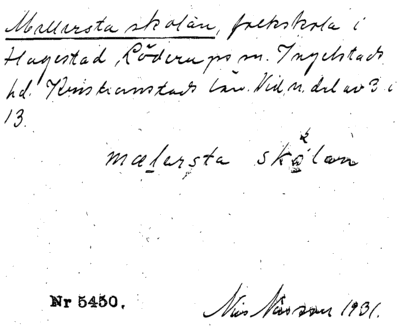 Mellersta skolan, folkskola i
Hagestad, Löderups sn. Ingelstads
hd. Kristianstads län. Vid n. del av 3 i
13.
mælersta skålan
Nr 5450.
Nils Nilsson 1931.